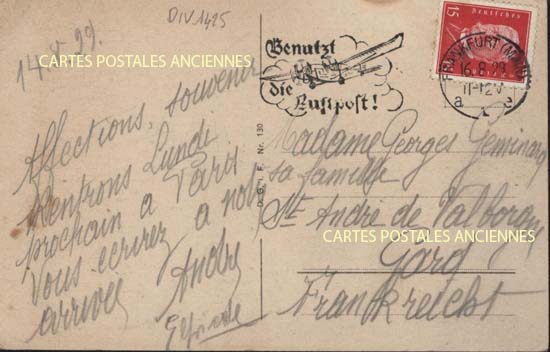 DIV1425
14.8.29.
CARTES POSTALES ANCIENNES
Affections, souvenir
Rentrons Lundi
prochain a Paris
Vous écrirez a notre
arrivée André
Benutzt
die
Luftpost!
15
Deutsches
Reich
FRANKFURT (MAIN)
16.8.29
11-12V
a e
D. G. i. F. Nr. 130
Madame Georges
sa famille
St André de Valborgne
CARTES POSTALES ANCIENNES
Gard
Frankreich